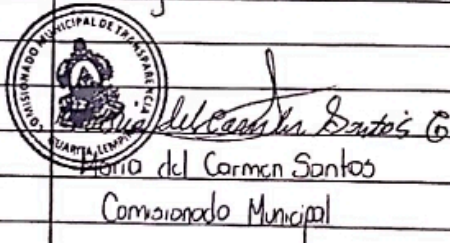 COMISIONADO MUNICIPAL DE TRANSPARENCIA
GUARITA, LEMPIRA
Maria del Carmen Santos G
Maria del Carmen Santos
Comisionado Municipal